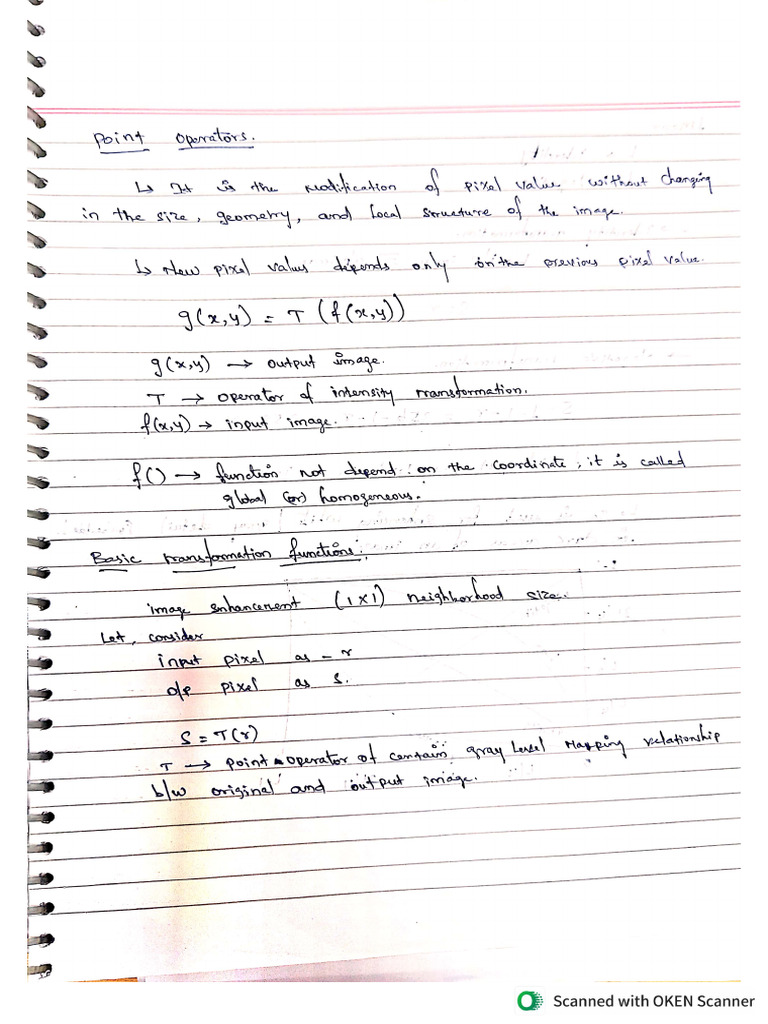 Point Operators.
↳ It is the modification of pixel value without changing
in the size, geometry, and local structure of the image.
↳ New pixel values depends only on the previous pixel value.
g(x,y) = T (f(x,y))
g(x,y) → output image.
T → operator of intensity transformation.
f(x,y) → input image.
f() → function not depend on the coordinate, it is called
global (or) homogeneous.
Basic transformation functions:
image enhancement (1x1) neighborhood size.
Let, consider
input pixel as - r
o/p pixel as s.
S = T(r)
T → point operator of certain gray level mapping relationship
b/w original and output image.
Scanned with OKEN Scanner